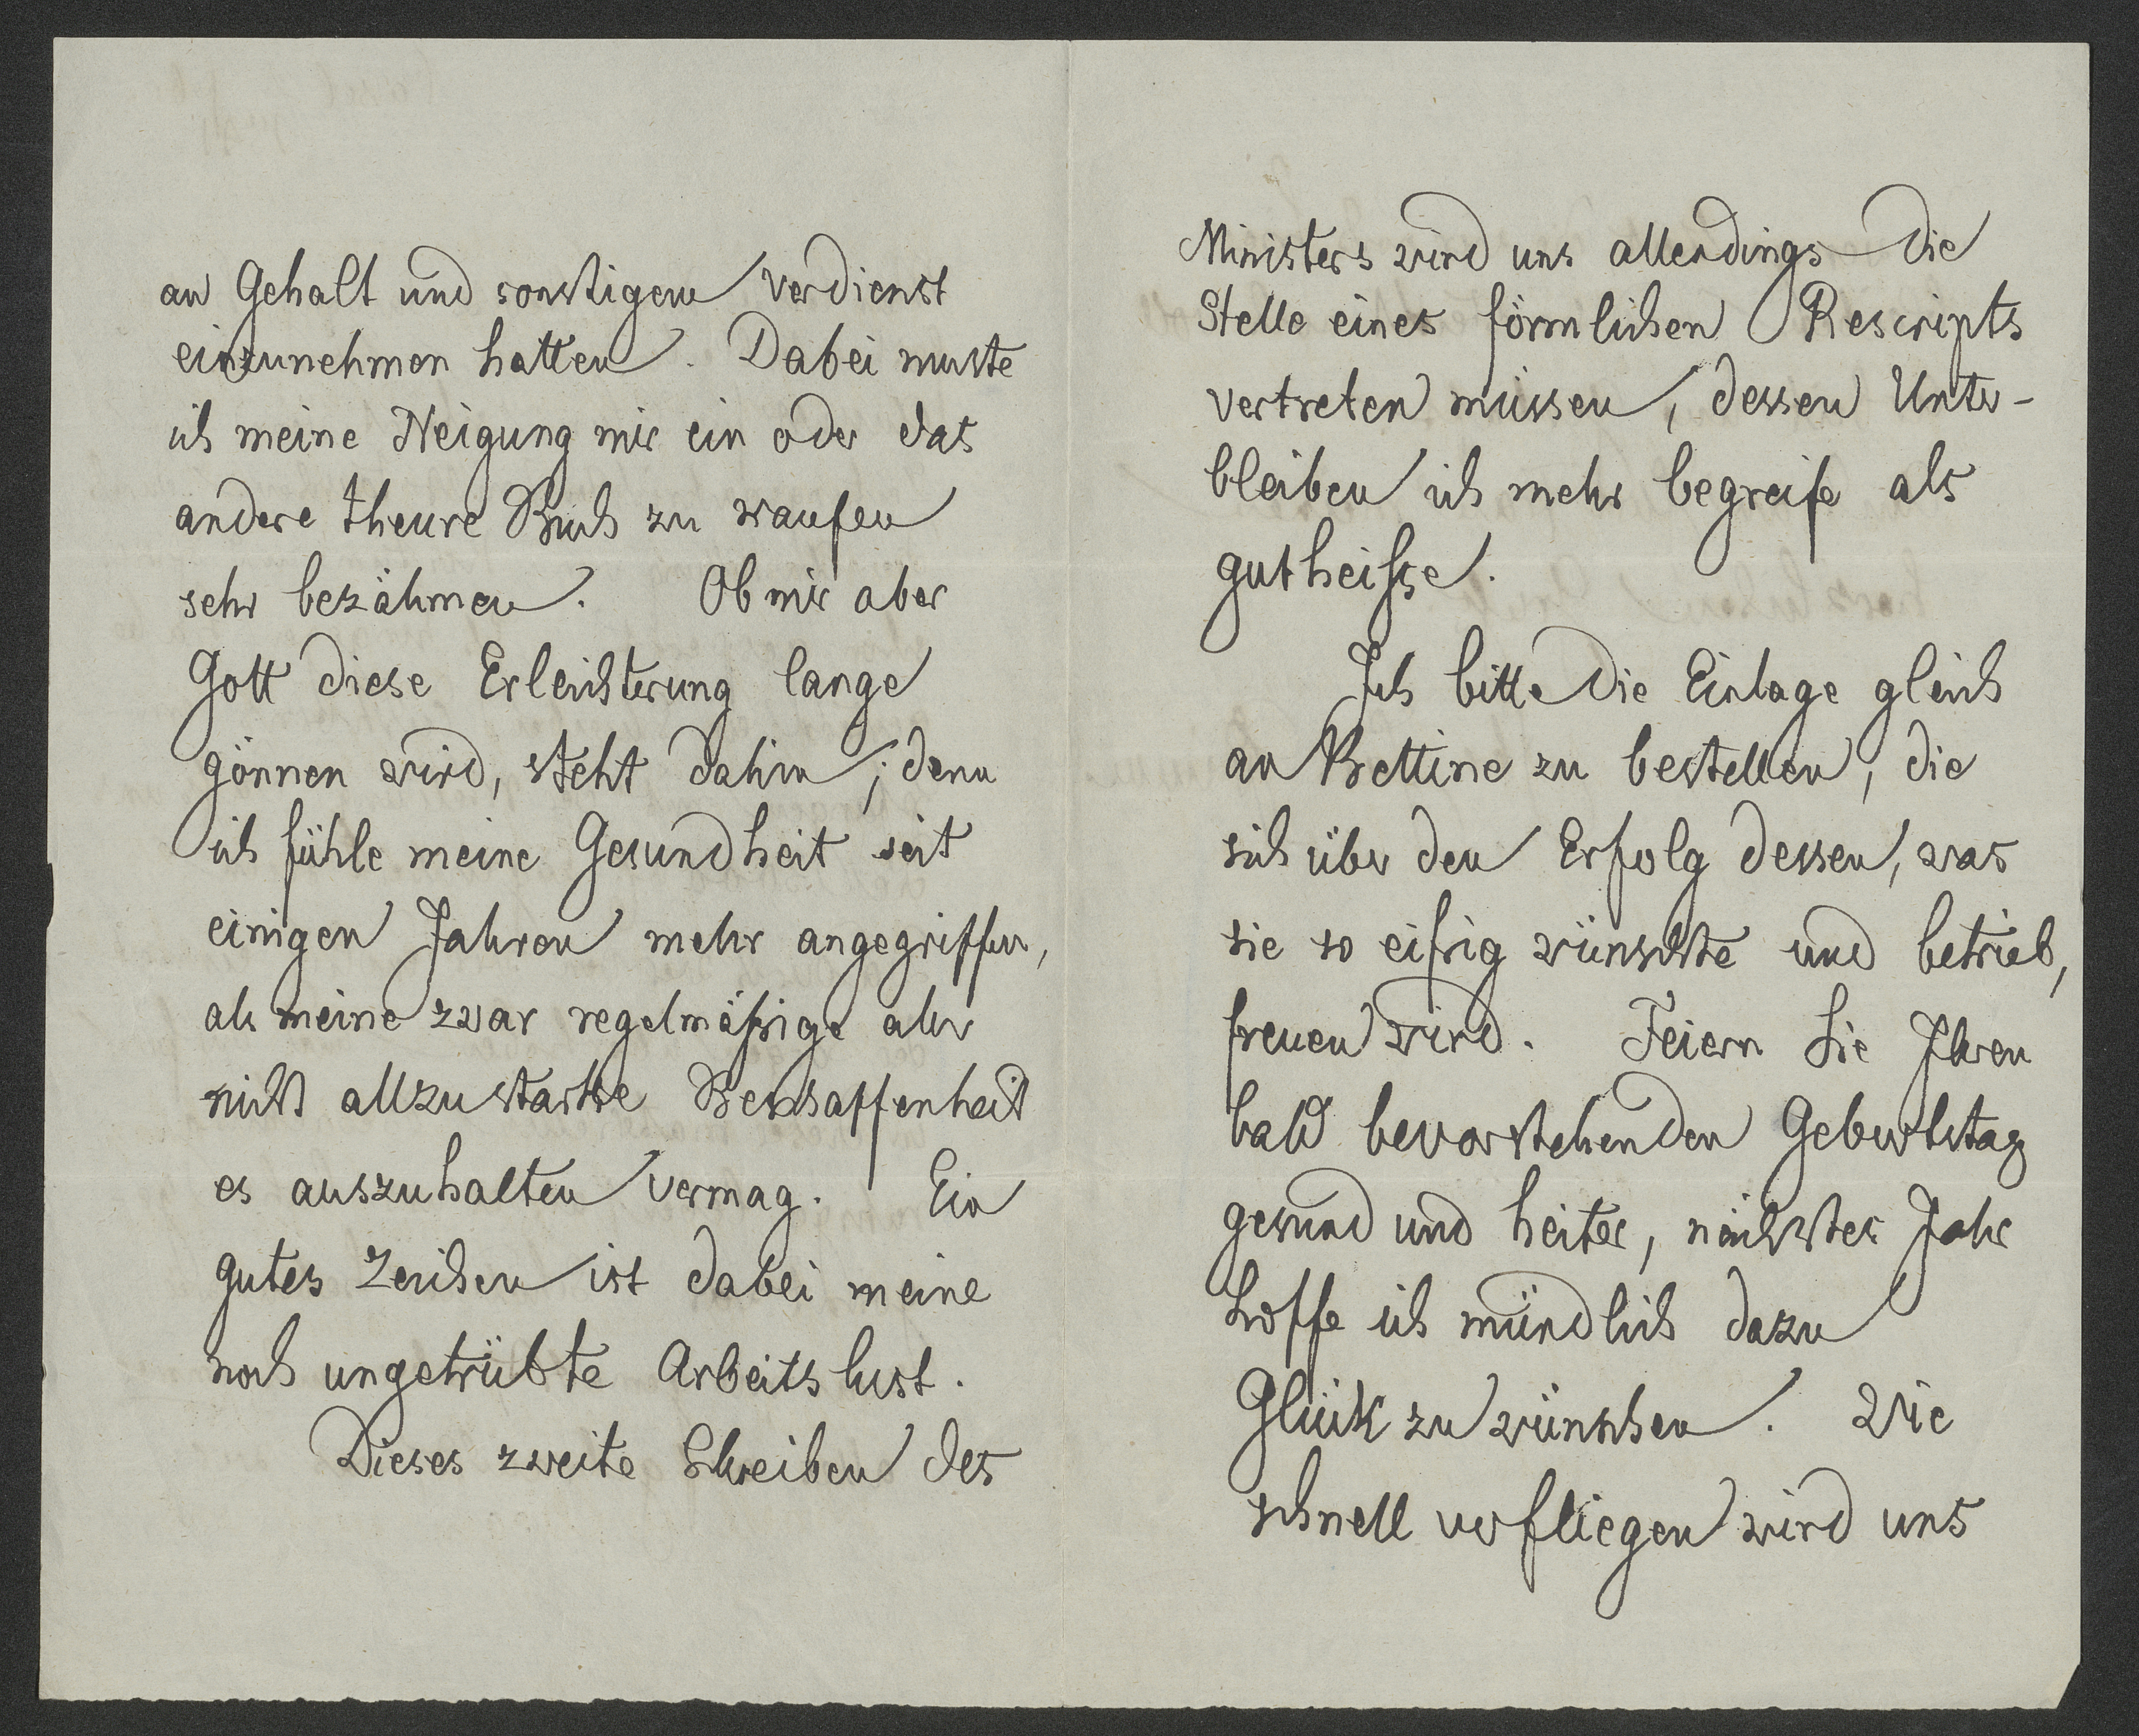 an Gehalt und sonstigem Verdienst
einzunehmen hatten. Dabei muste
ich meine Neigung mir ein oder das
andere theure Buch zu kaufen
sehr bezähmen. Ob mir aber
Gott diese Erleichterung lange
gönnen wird, steht dahin; denn
ich fühle meine Gesundheit seit
einigen Jahren mehr angegriffen,
als meine zwar regelmäßige aber
nicht allzustarke Beschaffenheit
es auszuhalten vermag. Ein
gutes Zeichen ist dabei meine
noch ungetrübte Arbeitslust.
Dieses zweite Schreiben des
Ministers wird uns allerdings die
Stelle eines förmlichen Rescripts
vertreten müssen, dessen Unter-
bleiben ich mehr begreife als
gutheiße.
Ich bitte die Einlage gleich
an Bettine zu bestellen, die
sich über den Erfolg dessen, was
sie so eifrig wünschte und betrieb,
freuen wird. Feiern Sie Ihren
bald bevorstehenden Geburtstag
gesund und heiter, nächstes Jahr
hoffe ich mündlich dazu
Glück zu wünschen. Wie
schnell verfliegen wird uns